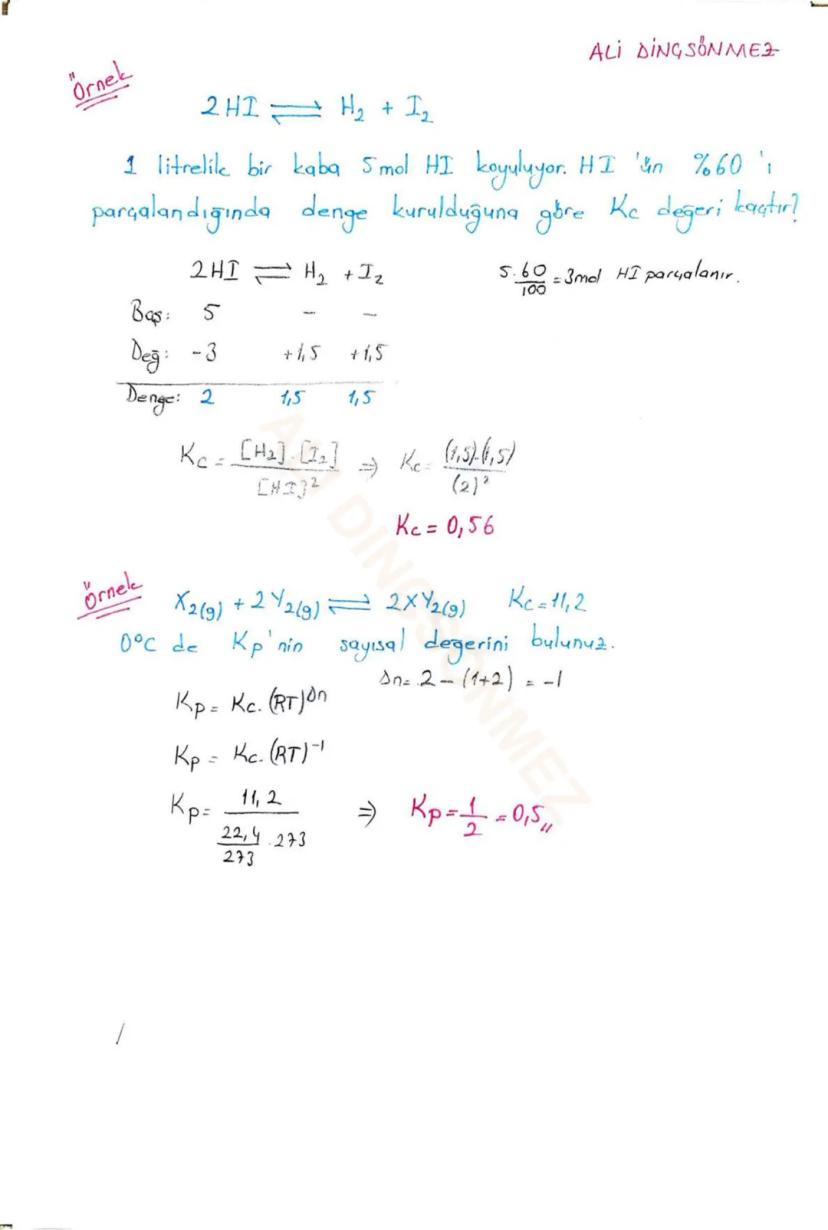 ALİ DİNÇSÖNMEZ
Örnek
2HI ⇌ H₂ + I₂
1 litrelik bir kaba 5 mol HI koyuluyor. HI 'ün %60 'ı
parçalandığında denge kurulduğuna göre Kc değeri kaçtır?
2HI ⇌ H₂ + I₂
5.60/100 = 3mol HI parçalanır.
Baş: 5 - -
Değ: -3 +1,5 +1,5
Denge: 2 1,5 1,5
Kc = [H₂].[I₂]/[HI]² ⇒ Kc = (1,5).(1,5)/(2)²
Kc = 0,56
Örnek
X₂(g) + 2Y₂(g) ⇌ 2XY₂(g) Kc = 11,2
0°C de Kp'nin sayısal değerini bulunuz.
Δn = 2 - (1+2) = -1
Kp = Kc.(RT)^Δn
Kp = Kc.(RT)⁻¹
Kp = 11,2/(22,4/273 . 273) ⇒ Kp = 1/2 = 0,5,,
ALİ DİNÇSÖNMEZ